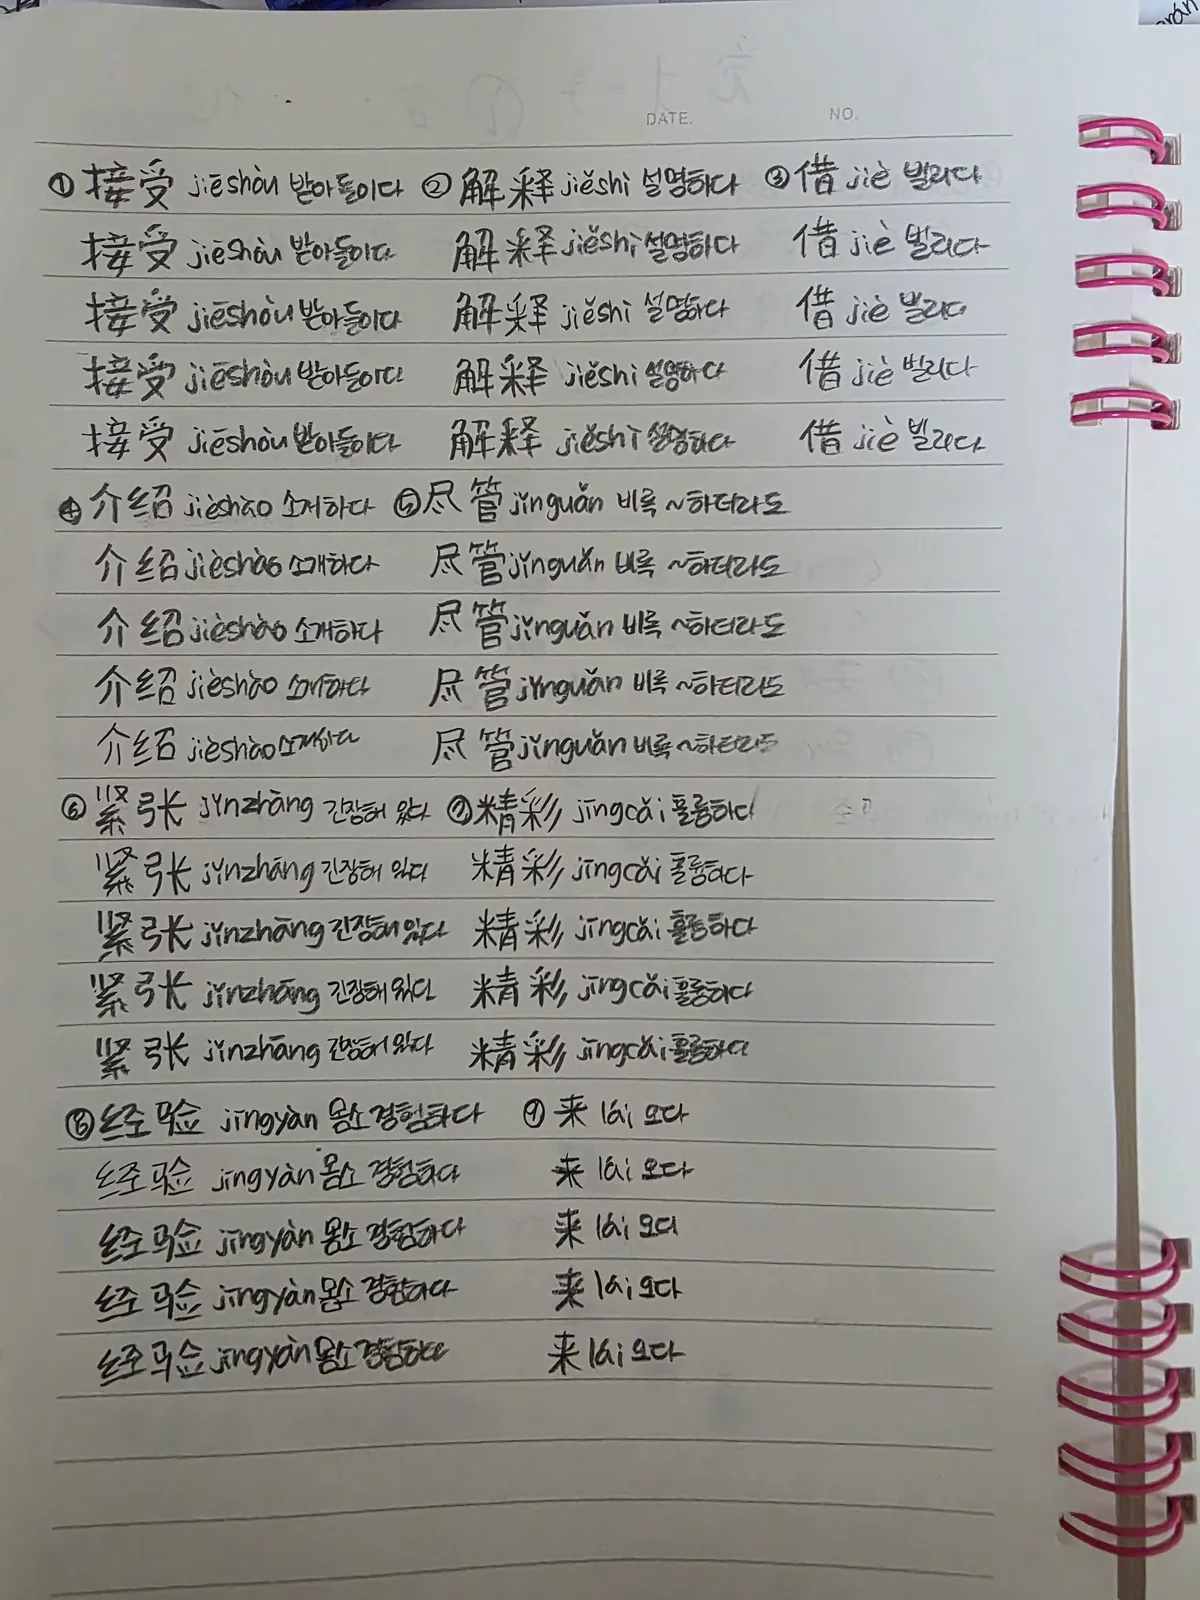 DATE. NO.
① 接受 jiēshòu 받아들이다 ② 解释 jiěshì 설명하다 ③ 借 jiè 빌리다
接受 jiēshòu 받아들이다 解释 jiěshì 설명하다 借 jiè 빌리다
接受 jiēshòu 받아들이다 解释 jiěshì 설명하다 借 jiè 빌리다
接受 jiēshòu 받아들이다 解释 jiěshì 설명하다 借 jiè 빌리다
接受 jiēshòu 받아들이다 解释 jiěshì 설명하다 借 jiè 빌리다
④ 介绍 jièshào 소개하다 ⑤ 尽管 jǐnguǎn 비록 ~하더라도
介绍 jièshào 소개하다 尽管 jǐnguǎn 비록 ~하더라도
介绍 jièshào 소개하다 尽管 jǐnguǎn 비록 ~하더라도
介绍 jièshào 소개하다 尽管 jǐnguǎn 비록 ~하더라도
介绍 jièshào 소개하다 尽管 jǐnguǎn 비록 ~하더라도
⑥ 紧张 jǐnzhāng 긴장해 있다 ⑦ 精彩 jīngcǎi 훌륭하다
紧张 jǐnzhāng 긴장해 있다 精彩 jīngcǎi 훌륭하다
紧张 jǐnzhāng 긴장해 있다 精彩 jīngcǎi 훌륭하다
紧张 jǐnzhāng 긴장해 있다 精彩 jīngcǎi 훌륭하다
紧张 jǐnzhāng 긴장해 있다 精彩 jīngcǎi 훌륭하다
⑧ 经验 jīngyàn 몸소 경험하다 ⑨ 来 lái 오다
经验 jīngyàn 몸소 경험하다 来 lái 오다
经验 jīngyàn 몸소 경험하다 来 lái 오다
经验 jīngyàn 몸소 경험하다 来 lái 오다
经验 jīngyàn 몸소 경험하다 来 lái 오다